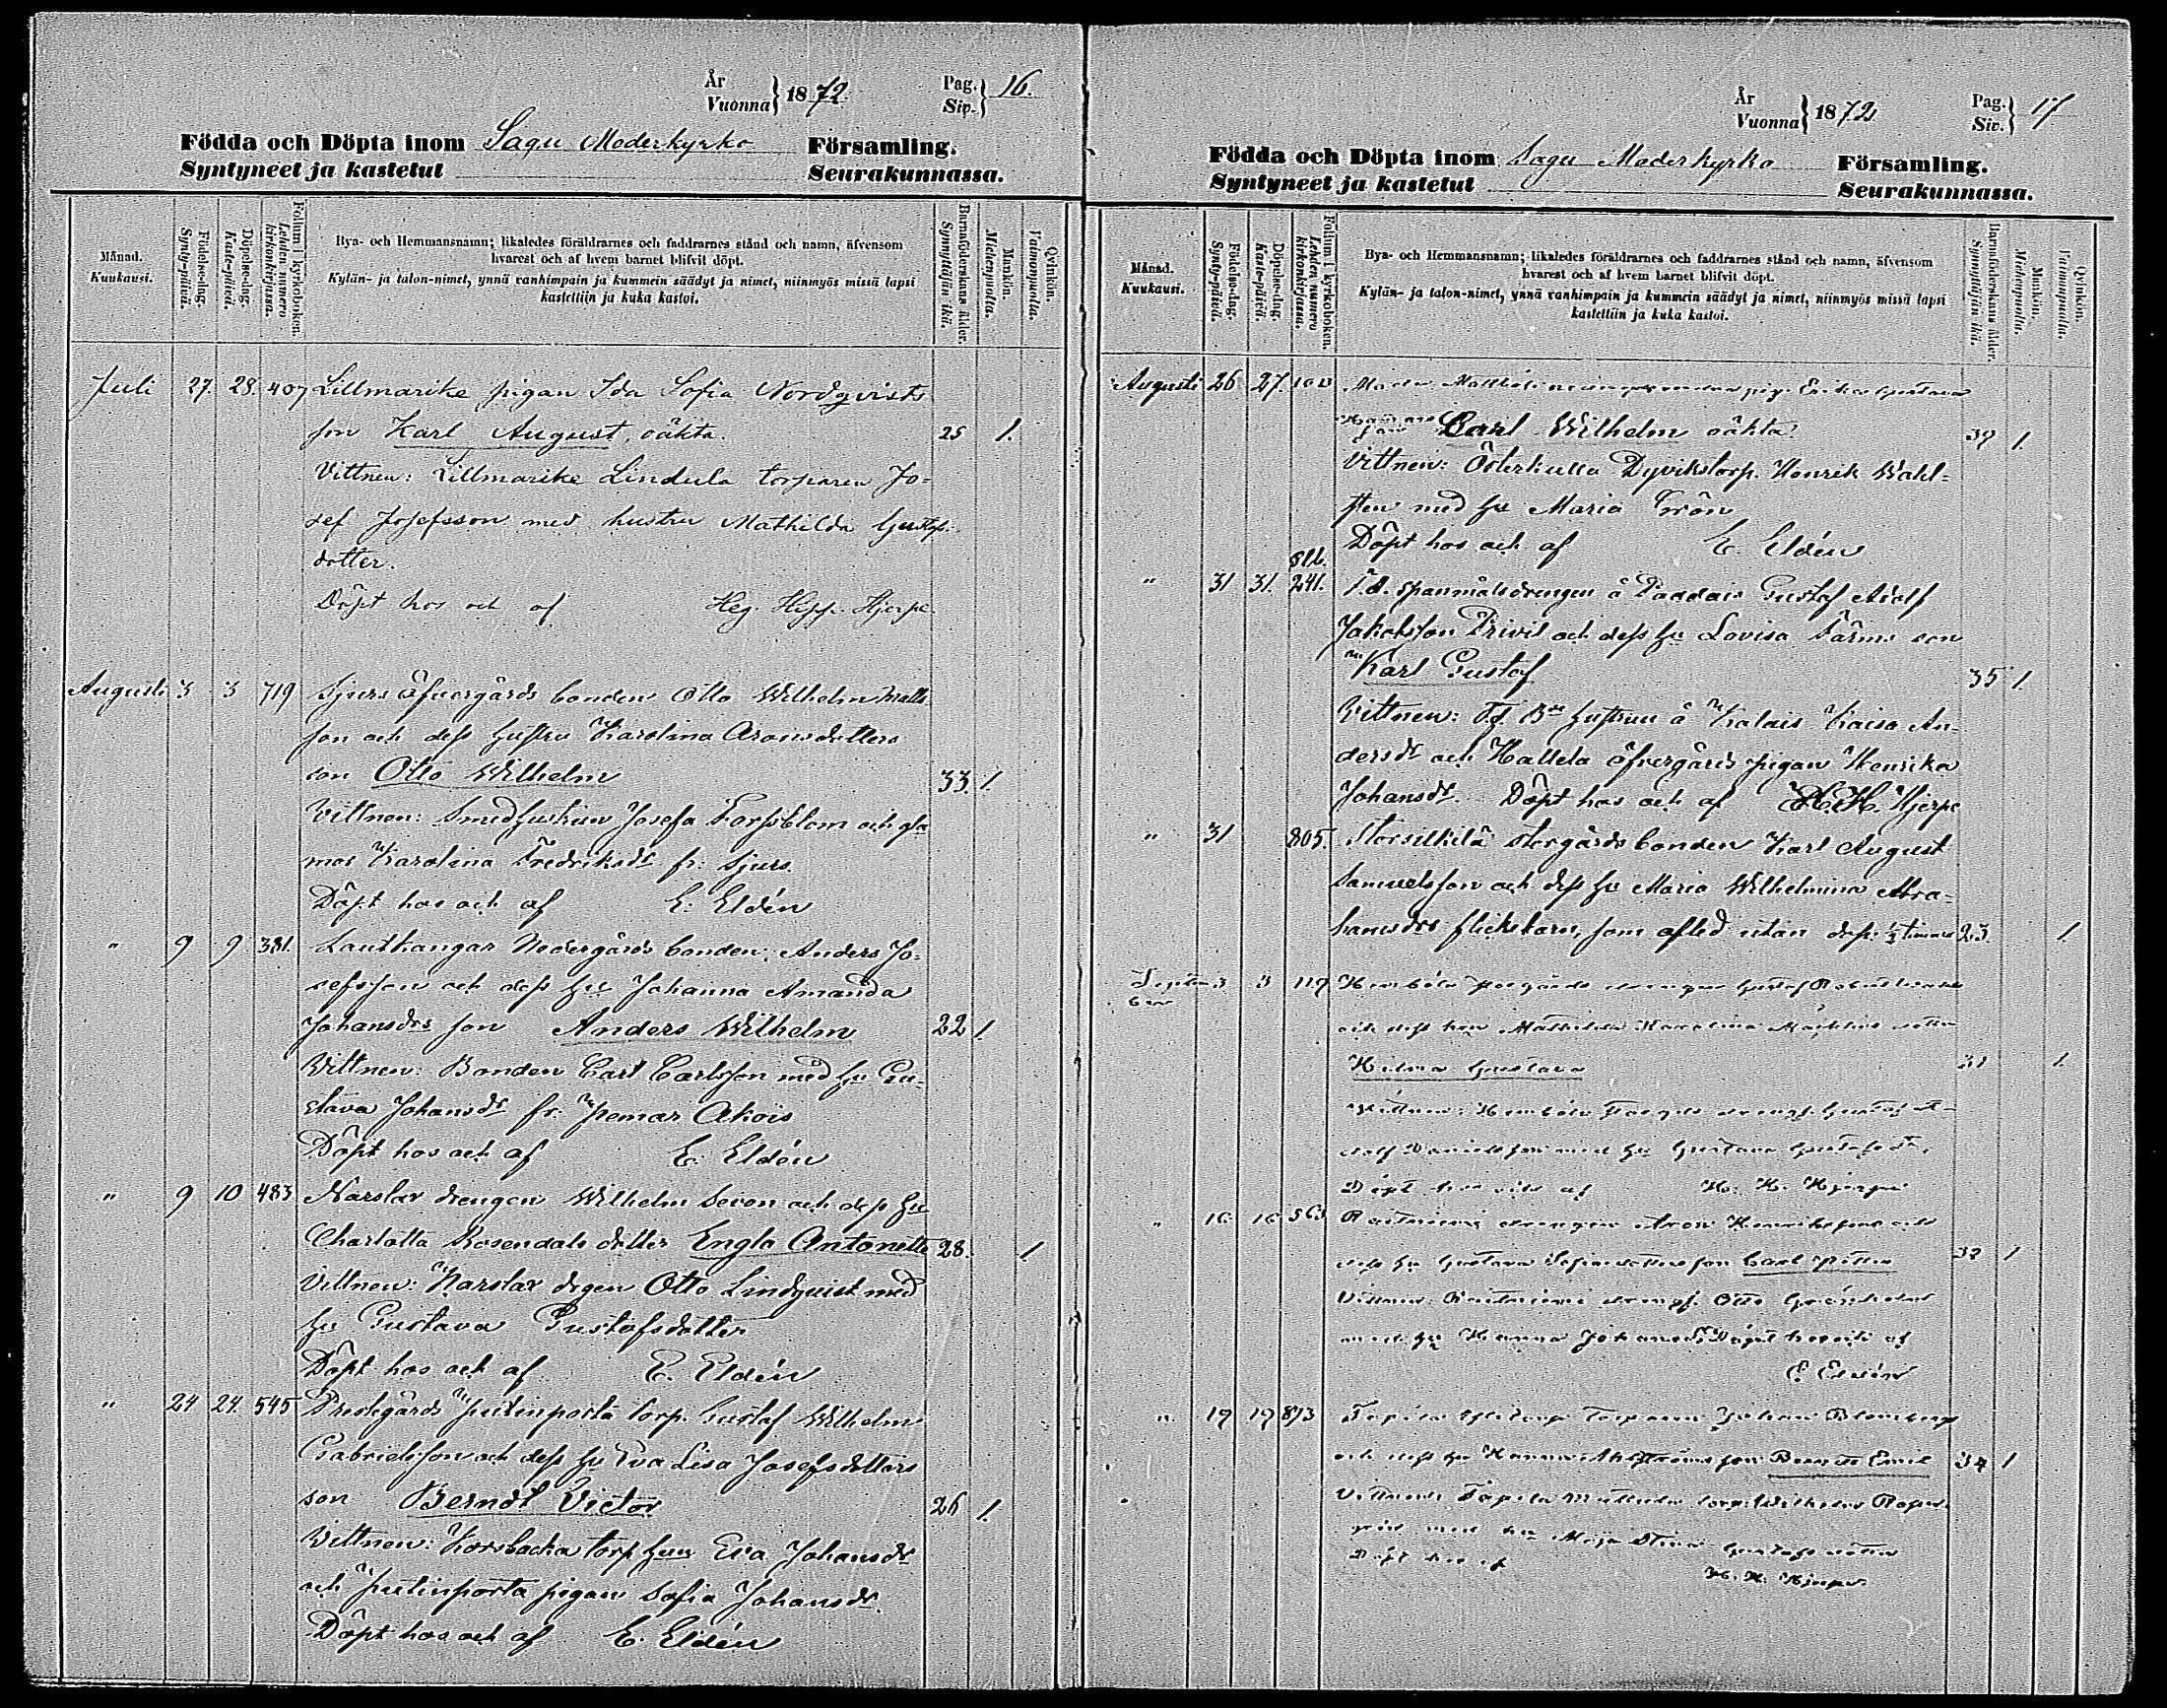 År
Vuonna } 1872. Pag.
Siv. } 16.
Födda och Döpta inom Sagu Moderkyrko Församling.
Syntyneet ja kastetut Seurakunnassa.
Månad.
Kuukausi.
Födelse-dag.
Synty-päivä.
Döpelse-dag.
Kaste-päivä.
Folium i kyrkoboken.
Lehden numero
kirkonkirjassa.
Bya- och Hemmansnamn; likaledes föräldrarnes och faddrarnes stånd och namn, äfvensom
hvarest och af hvem barnet blifvit döpt.
Kylän- ja talon-nimet, ynnä vanhimpain ja kummein säädyt ja nimet, niinmyös missä lapsi
kastettiin ja kuka kastoi.
Barnaföderskans ålder.
Synnyttäjän ikä.
Mankön.
Miehenpuolta.
Qvinkön.
Vaimonpuolta.
Juli 27. 28. 407 Lillmarike pigan Ida Sofia Nordqvists
son Karl August, oäkta. 25 1.
Vittnen: Lillmarike Lindula torparen Jo-
sef Josefsson med hustru Mathilda Gustafs-
dotter.
Döpt hos och af Heg. Hipp. Hjerpe
Augusti 3 3 719 Sjurs öfvergårds bonden Otto Wilhelm Matts
son och dess hustru Karolina Aronsdotters
son Otto Wilhelm 33. 1.
Vittnen: Smedhustrun Josefa Forssblom och
Karolina Fredriksdr fr: Sjurs.
Döpt hos och af E. Eldén
" 9 9 381. Lautkangar Nedergårds bonden Anders Jo-
sefsson och dess hu Johanna Amanda
Johansdrs son Anders Wilhelm 22 1.
Vittnen: Bonden Carl Carlsson med hu Gu-
stava Johansdr fr: Pemar Akois
Döpt hos och af E. Eldén
" 9 10 483 Karslax drengen Wilhelm Sevon och dess hu
Charlotta Rosendals dotter Engla Antonette 28. 1
Vittnen: Karslax drgen Otto Lindquist med
hu Gustava Gustafsdotter
Döpt hos och af E. Eldén
" 24 24. 545 Prestegårds Putinporta torp. Gustaf Wilhelm
Gabrielsson och dess hu Eva Lisa Josefsdotters
son Berndt Victor 26 1.
Vittnen: Korsbacka torp hun Eva Johansdr
och Putinporta pigan Sofia Johansdr.
Döpt hos och af E. Eldén
År
Vuonna } 1872 Pag.
Siv. } 17
Födda och Döpta inom Sagu Moderkyrko Församling.
Syntyneet ja kastetut Seurakunnassa.
Månad.
Kuukausi.
Födelse-dag.
Synty-päivä.
Döpelse-dag.
Kaste-päivä.
Folium i kyrkoboken.
Lehden numero
kirkonkirjassa.
Bya- och Hemmansnamn; likaledes föräldrarnes och faddrarnes stånd och namn, äfvensom
hvarest och af hvem barnet blifvit döpt.
Kylän- ja talon-nimet, ynnä vanhimpain ja kummein säädyt ja nimet, niinmyös missä lapsi
kastettiin ja kuka kastoi.
Barnföderskans ålder.
Synnyttäjän ikä.
Mankön.
Miehenpuolta.
Qvinkön.
Vaimonpuolta.
Augusti 26 27. Erika Gustava
son Carl Wilhelm oäkta. 39 1.
Vittnen: Österkulla Dyvikstorp. Henrik Wahl-
sten med hu Maria Grön
Döpt hos och af E. Eldén
812.
" 31 31. 241. F.d. spanmålsdrengen å Paddais Gustaf Adolf
Jakobsson Privil och dess hu Lovisa Färms son
Karl Gustaf 35 1.
Vittnen: hustrun å Kalais Kaisa An-
dersdr och Hallela öfvergårds pigan Henrika
Johansdr. Döpt hos och af H.H. Hjerpe
" 31 805. Storsilkilä storgårds bonden Karl August
Samuelsson och dess hu Maria Wilhelmina Abra-
hamsdrs flickebarn, som afled utan dop: ½ timme 23. 1.
Septem- 3 3 119
ber
och dess hu Mathilda Karolina dotter
Hilma Gustava 31 1.
Vittnen: Gustaf A-
dolf Danielsson med hu Gustava Gustafsdr.
Döpt hos och af H. H. Hjerpe
" 16 16 563 drengen Aron Henriksson och
dess hu Gustava Sofia dotters son Carl 32 1
Vittnen: Otto Grönholm
med hu Hanna Johansdr. Döpt hos och af
E. Eldén
" 19 19 873 torparen Johan Blomberg
och dess hu Hanna Ahlströms son Berndt Emil 34 1
Vittnen: torp: Wilhelm
med hu Maja Stina Gustafsdotter
Döpt hos af H. H. Hjerpe.